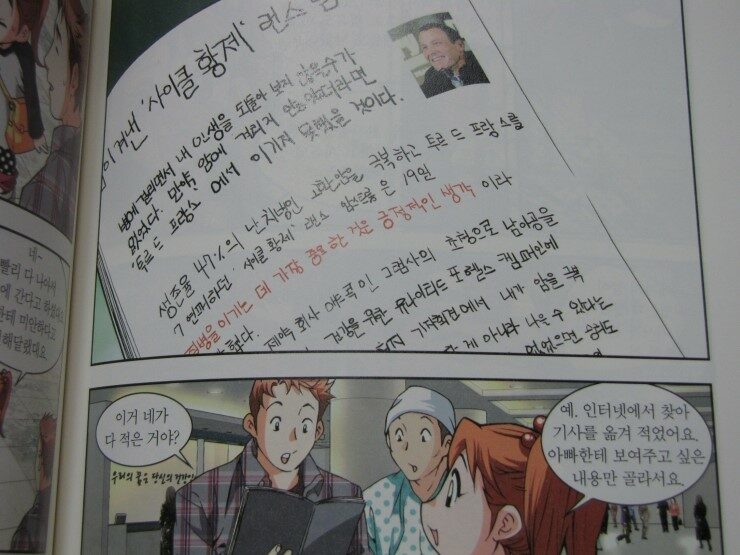 이겨낸 '사이클 황제' 랜스 암
병에 걸리면서 내 인생을 되돌아 보지 않을 수가
없었다. 만약 암에 걸리지 않았더라면
'투르 드 프랑스'에서 이기지 못했을 것이다.
생존율 47%의 난치병인 고환암을 극복하고 투르 드 프랑스를
7 연패하던 '사이클 황제' 랜스 암스트롱은 19일
질병을 이기는 데 가장 중요한 것은 긍정적인 생각이라
했다.
제약 회사 애보트 인 그램사의 초청으로 남아공을
건강을 위한 유나이티드 포 헬스 캠페인에
기자회견에서 내가 암을 극복
게 아니라 나을 수 있다는
없었으면 승리도
네~
빨리 다 나아서
에 간다고 하셨
한테 미안하다고
해달랬대요.
이거 네가
다 적은 거야?
우리의 꿈은 당신의 건강
예. 인터넷에서 찾아
기사를 옮겨 적었어요.
아빠한테 보여주고 싶은
내용만 골라서요.